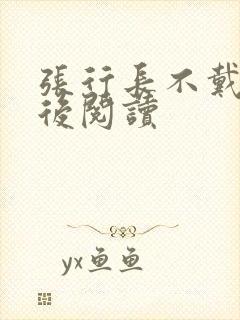 張行長不戴
後閱讀
yx鱼鱼